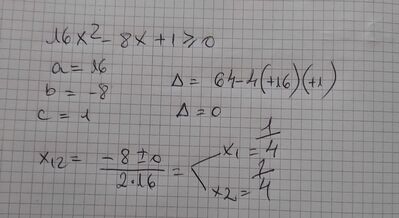 16x² - 8x + 1 ≥ 0
a = 16
b = -8
c = 1
Δ = 64 - 4(+16)(+1)
Δ = 0
x₁₂ = (-8 ± 0)/(2·16) =
x₁ = 1/4
x₂ = 1/4